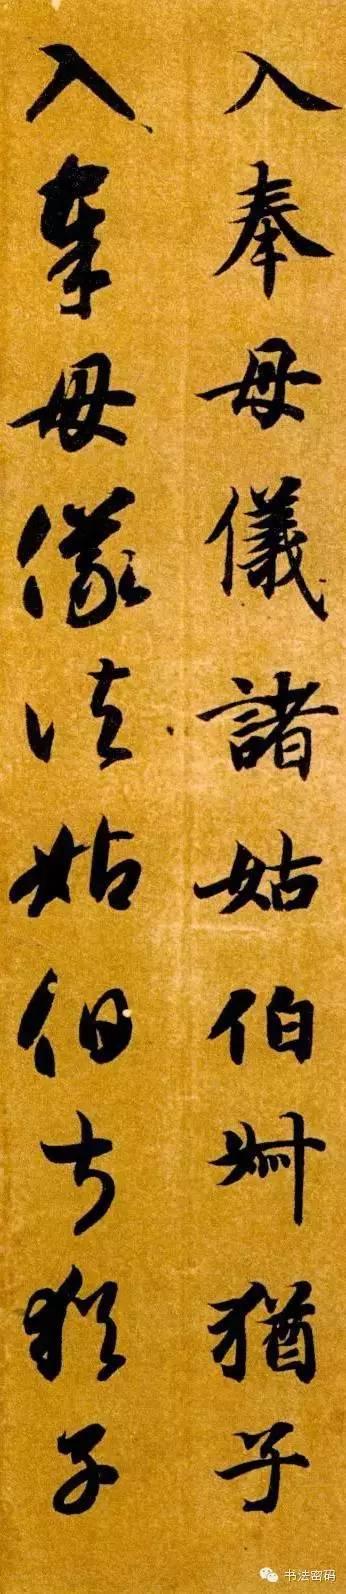 入奉母儀諸姑伯叔猶子
入奉母儀諸姑伯叔猶子
书法密码